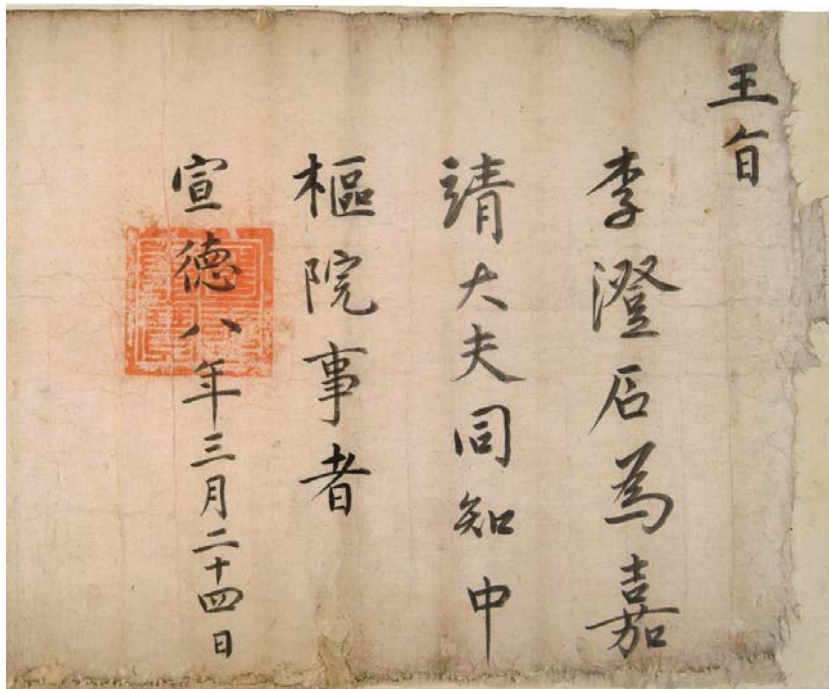 王旨
李澄石為嘉
靖大夫同知中
樞院事者
宣德八年三月二十四日